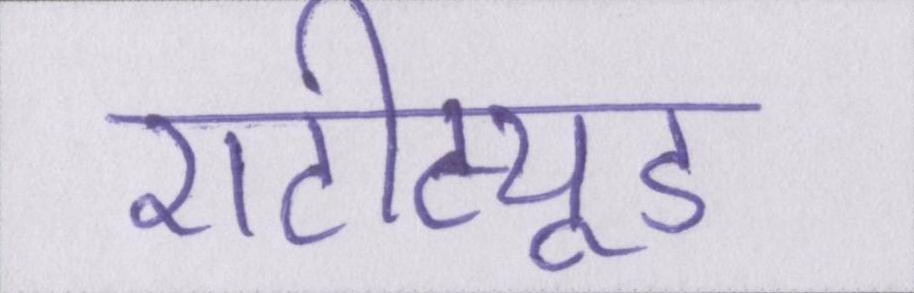 एटीट्यूड